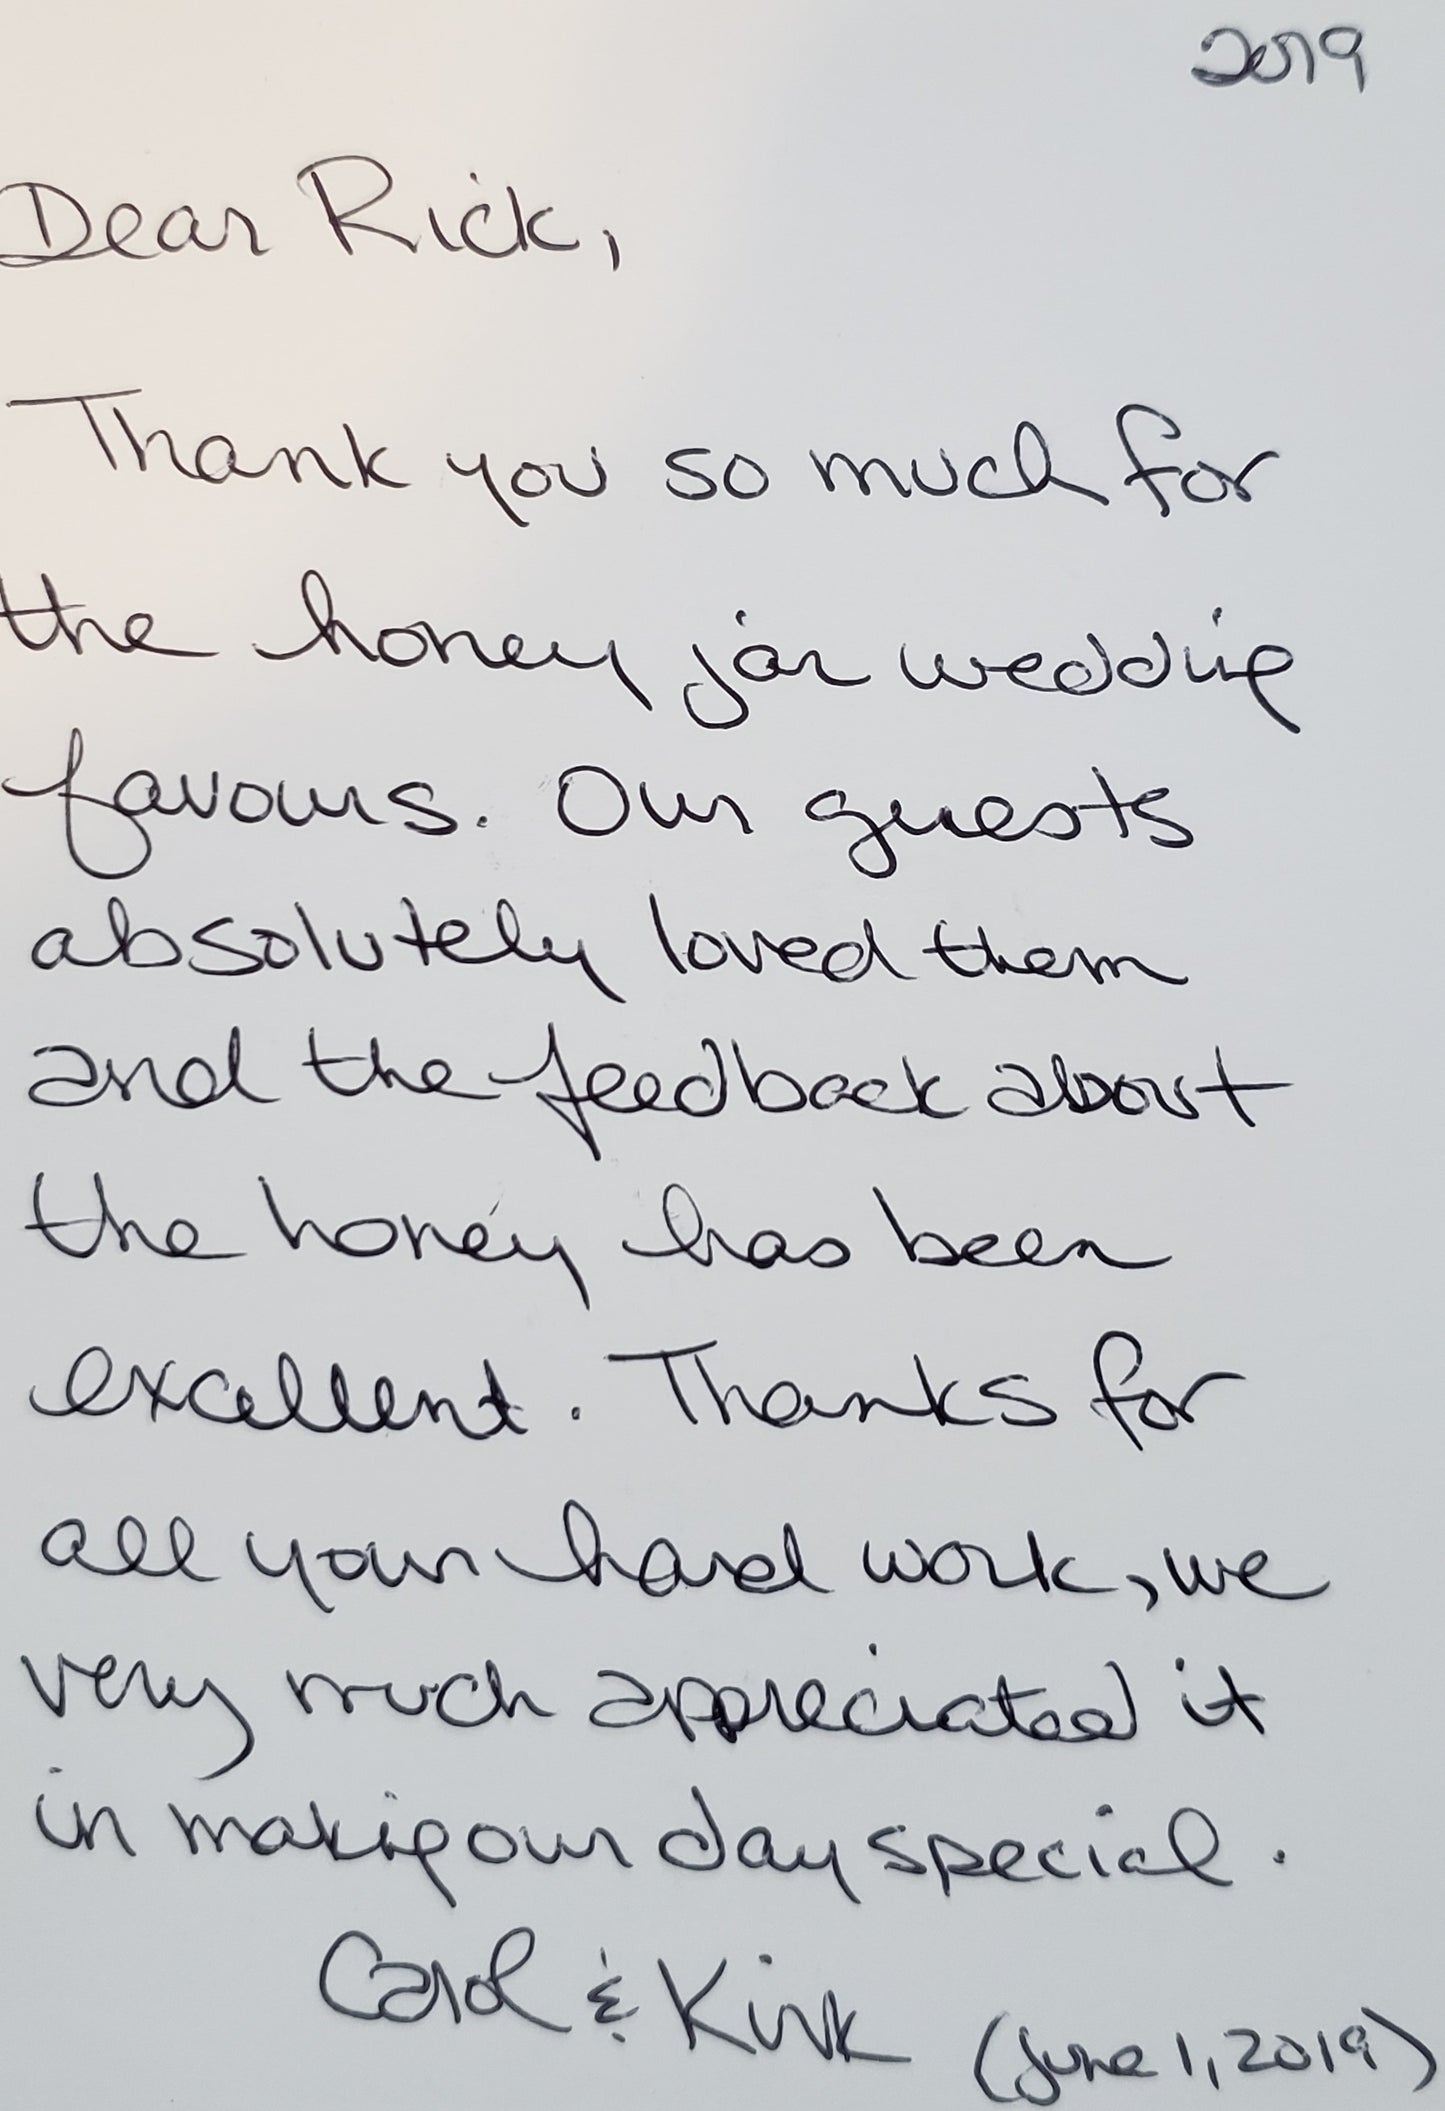 2019
Dear Rick,
Thank you so much for
the honey jar wedding
favours. Our guests
absolutely loved them
and the feedback about
the honey has been
excellent. Thanks for
all your hard work, we
very much appreciated it
in making our day special.
Carol & Kirk (June 1, 2019)